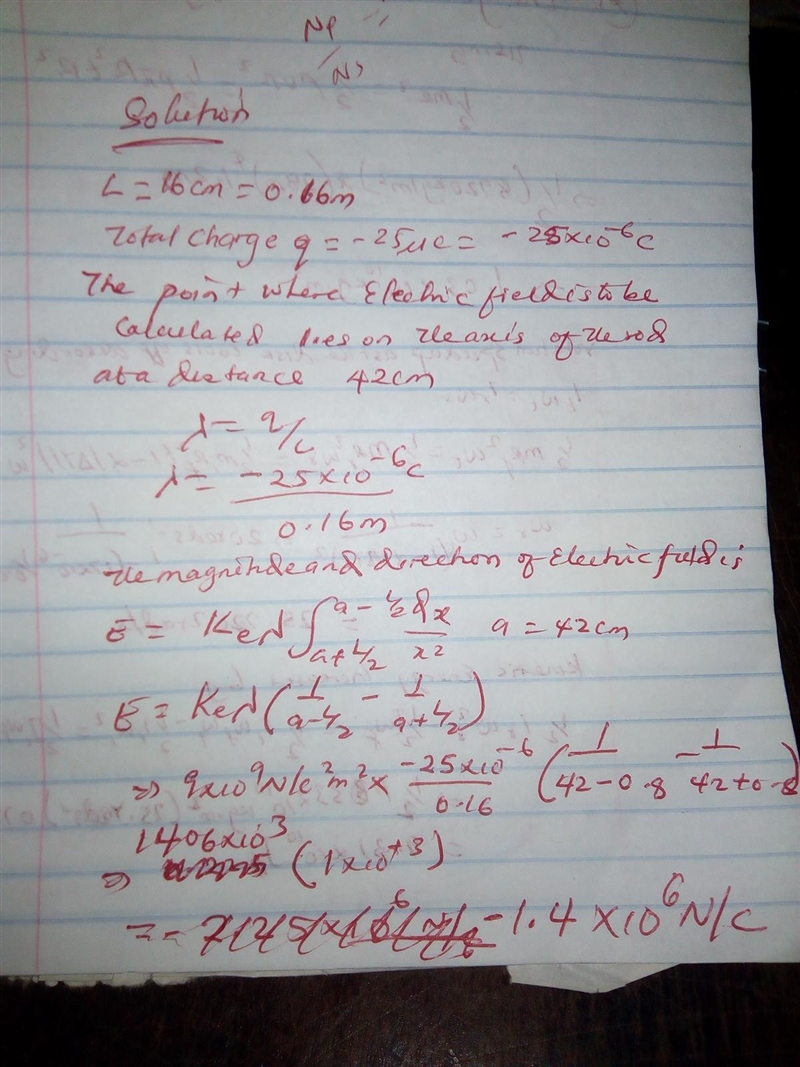 Np
Ns
Solution
L = 16cm = 0.16m
Total Charge q = -25μc = -25x10⁻⁶c
The point where Electric field is to be
Calculated lies on the axis of the rod
at a distance 42cm
λ = q/L
λ = -25x10⁻⁶c
0.16m
The magnitude and direction of Electric field is
E = Keλ ∫ a-L/2 a+L/2 dx/x2 a = 42cm
E = Keλ (1/a-L/2 - 1/a+L/2)
⇒ 9x10⁹N/c²m² x -25x10⁻⁶/0.16 (1/42-0.8 - 1/42+0.8)
1406x10³
⇒ (1x10⁺³)
= - 1.4x10⁶N/C